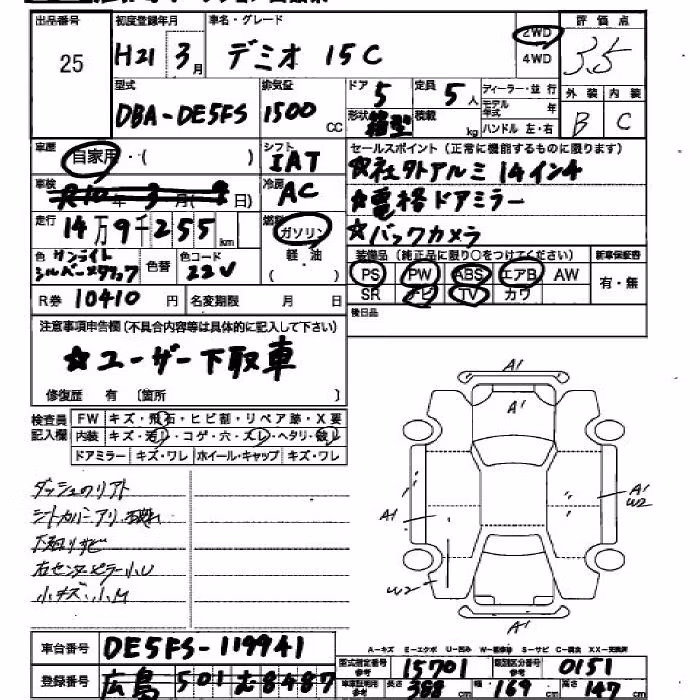 出品番号 初度登録年月 車名・グレード 評価点
25 H21 3月 デミオ 15C 2WD 3.5
4WD
型式 排気量 ドア 5 定員 5人 ディーラー・並行 外装 内装
DBA-DE5FS 1500 CC 形状 箱型 積載 kg モデル年式 年 B C
ハンドル 左・右
車歴 自家用・( ) シフト IAT セールスポイント(正常に機能するものに限ります)
☆社外アルミ 14インチ
車検 年 月( 日) 冷房 AC ☆電格ドアミラー
走行 14万9千255 km 燃料 ガソリン ☆バックカメラ
軽・油
( )
色 サンライトシルバーメタリック 色替 色コード 22V 装備品(純正品に限り○をつけてください) 新車保証書
PS PW ABS エアB AW 有・無
R券 10410 円 名変期限 月 日 SR ナビ TV カワ
後日品
注意事項申告欄(不具合内容等は具体的に記入して下さい)
☆ユーザー下取車
修復歴 有 〔箇所 〕
検査員記入欄 FW キズ・飛石・ヒビ割・リペア跡・X要
内装 キズ・汚レ・コゲ・穴・スレ・ヘタリ・破レ
ドアミラー キズ・ワレ ホイール・キャップ キズ・ワレ
ダッシュのリアト
シートカバーアリ
下廻りサビ
右センターピラー小U
小キズ、小M
A1
A1
A1
A1
W2
W2
A1
A-キズ E-エクボ U-凹み W-板修跡 S-サビ C-腐食 XX-交換済
車台番号 DE5FS-119941
型式指定番号 参考 15701 類別区分番号 参考 0151
登録番号 広島 501 む8487
車車記載 参考 長さ 388 cm 幅 169 cm 高さ 147 cm